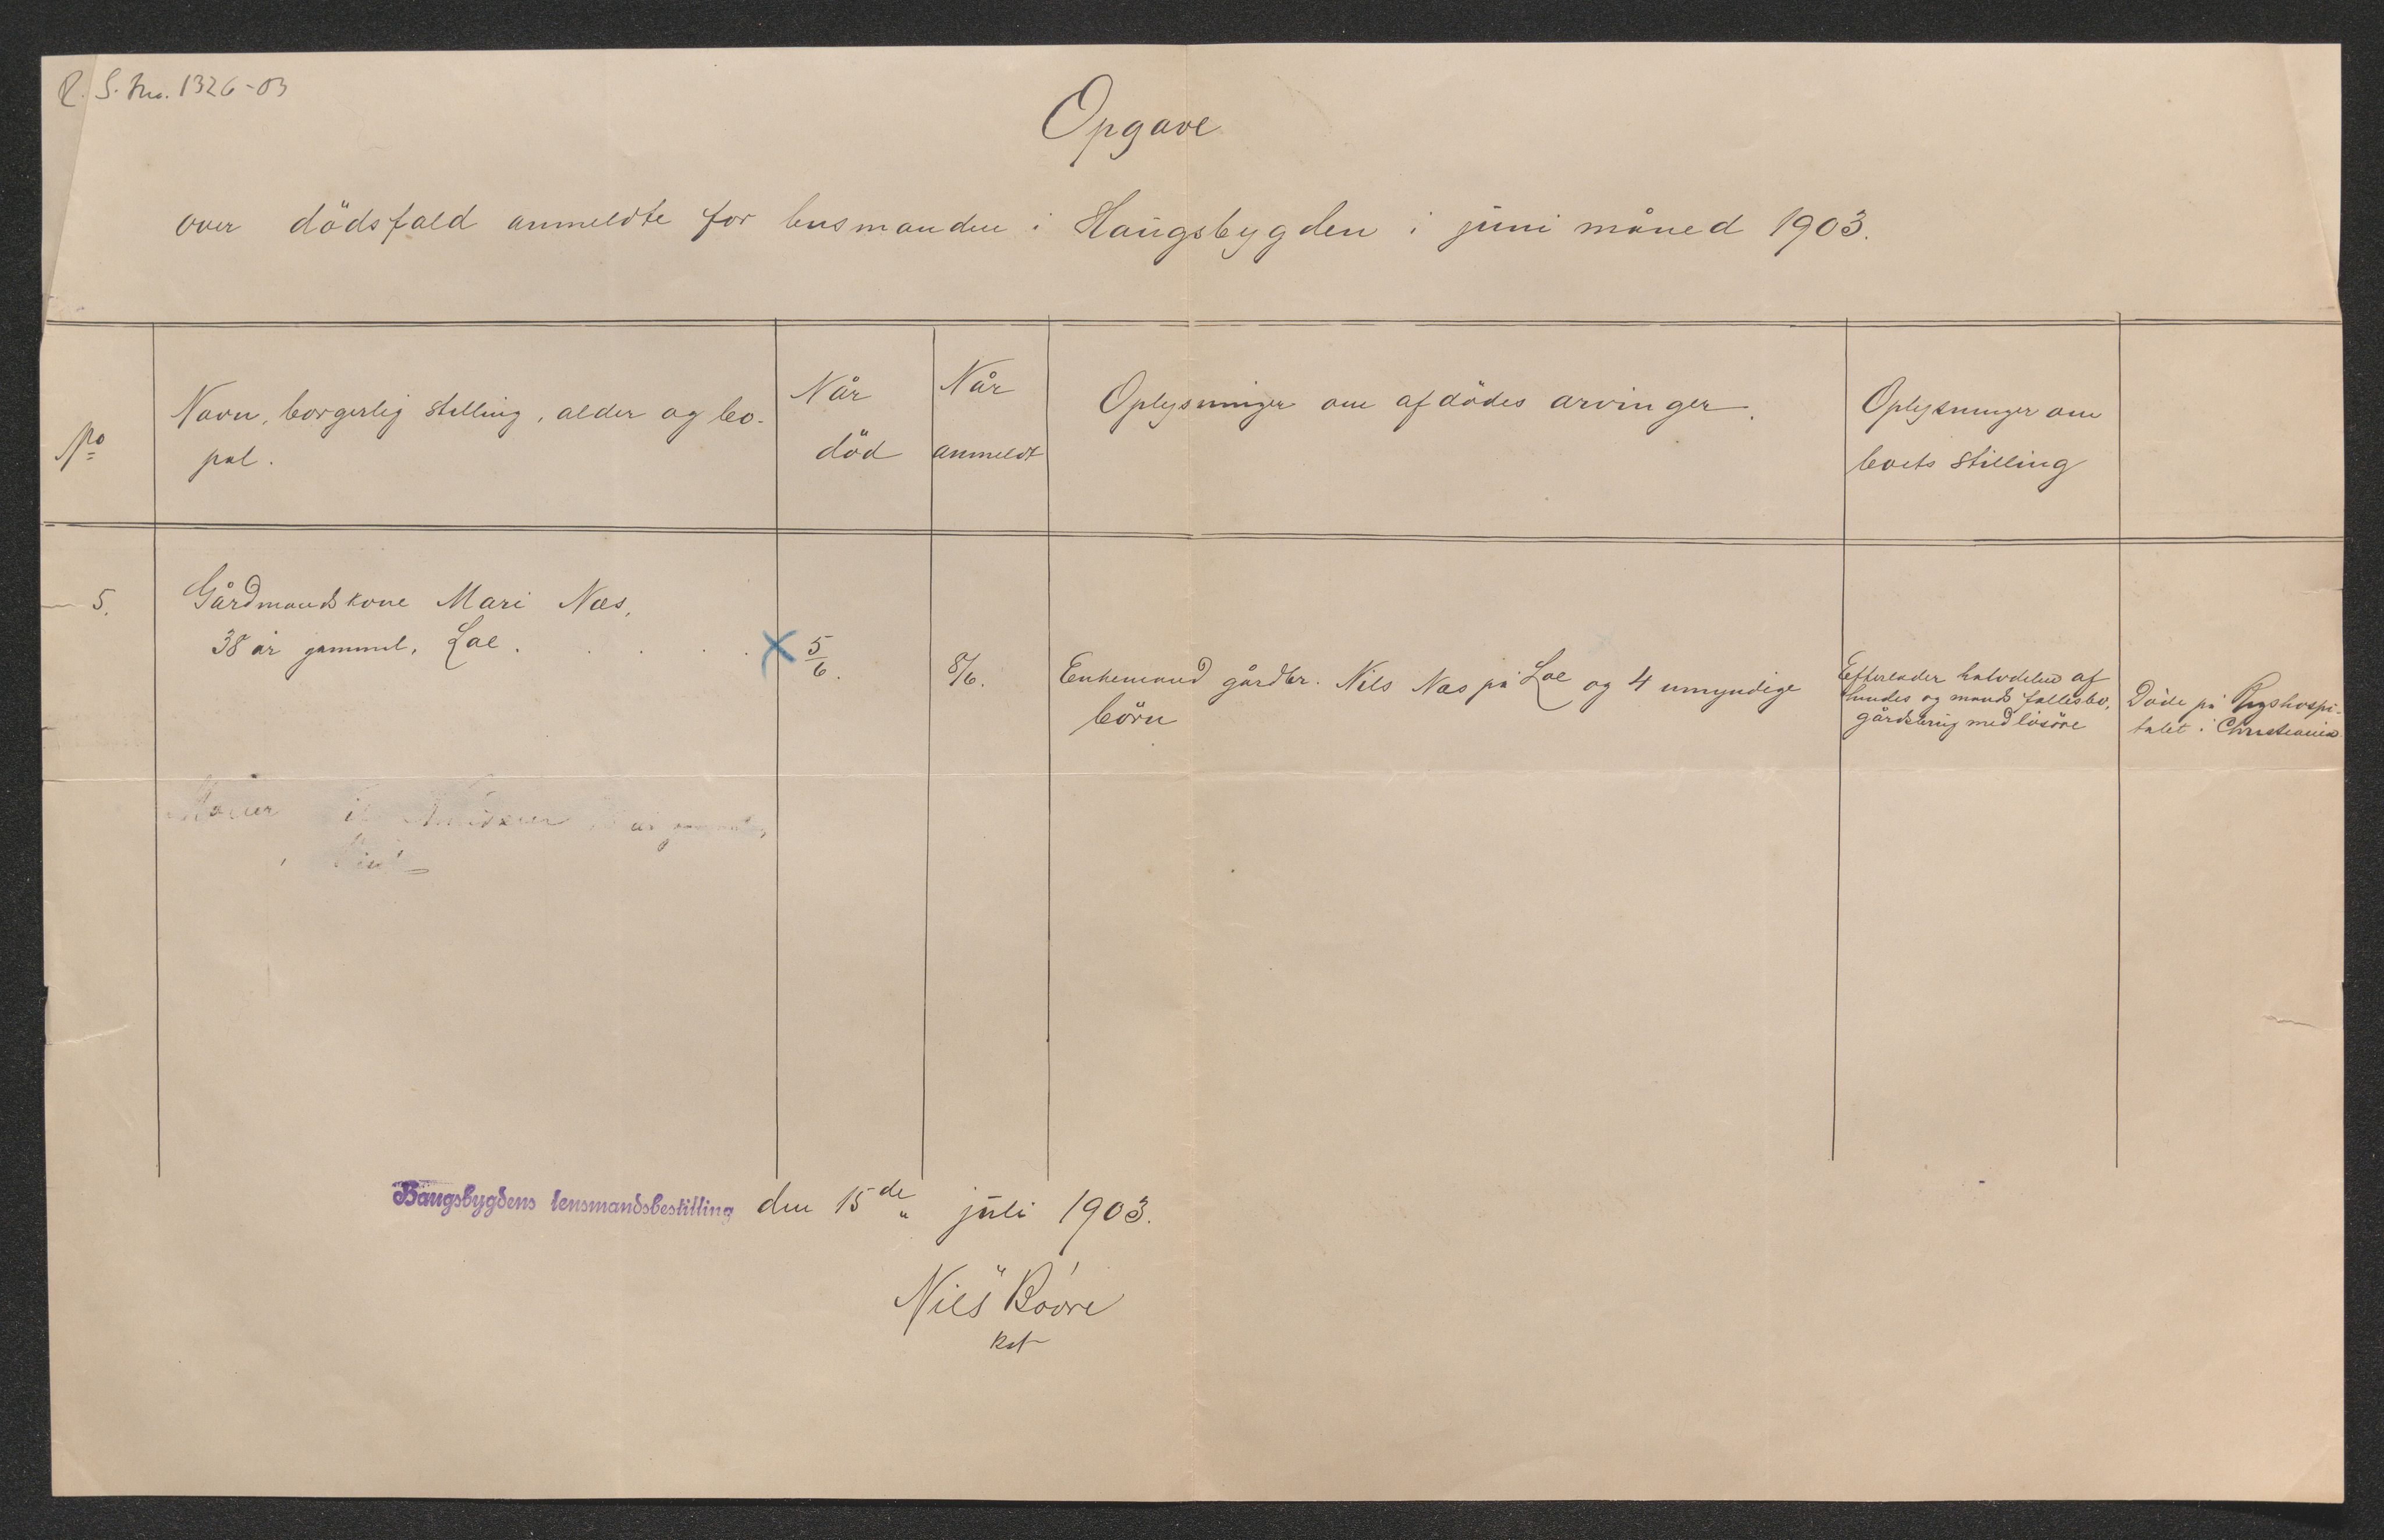 R. S. No. 1326-03
Opgave
over dödsfald anmeldte for lensmanden i Haugsbygden i juni måned 1903.
No
Navn, borgerlig stilling, alder og bo-
pæl.
Når
död
Når
anmeldt
Oplysninger om afdödes arvinger.
Oplysninger om
boets stilling
5.
Gårdmandskone Mari Næs,
38 år gammel, Loe.
5/6.
8/6.
Enkemand gårdbr. Nils Næs på Loe og 4 umyndige
börn
Efterlader halvdelen af
hendes og mands fællesbo,
gårdsbrug med lösöre
Döde på Rigshospi-
talet i Christiania
Haugsbygdens lensmandsbestilling den 15de juli 1903.
Nils Bööre
kst